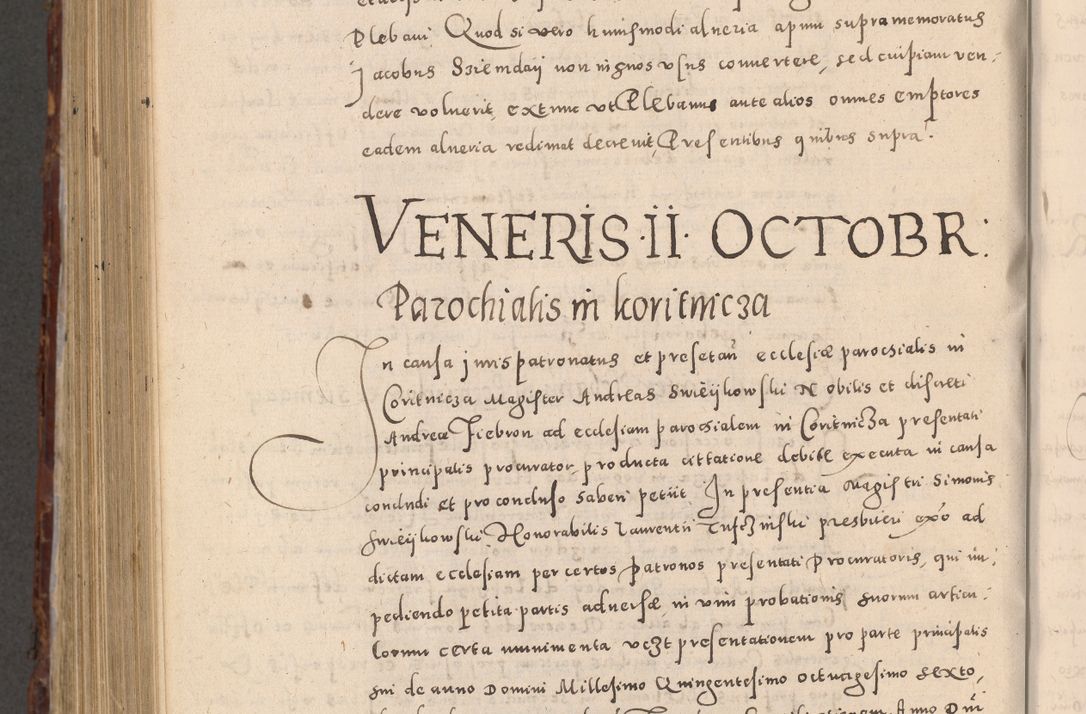 Plebani Quod si vero huiusmodi alneria apum supramemoratus
Jacobus Sziemdaÿ non in suos vsus convertere, sed cuipiam ven-
dere voluerit, extunc vt Plebanus ante alios omnes emptores
eadem alneria redimat decrevit, Presentibus quibus supra.
VENERIS · ii · OCTOBR:
Parochialis in koritnicza
In causa juris patronatus et presetañ ecclesiæ parochialis in
Coritnicza Magister Andreas Swieÿkowski Nobilis et discreti
Andreæ Fiebron ad ecclesiam parochialem in Coritnicza presentati
principalis procurator, producta cittatione debite executa in causa
concludi et pro concluso haberi petiit. In presentia Magistri Simonis
Swieÿkowski Honorabilis Laurentii presbiteri exõ ad
dictam ecclesiam per certos patronos presentati Procuratoris, qui im-
pediendo petita partis adversæ, in vim probationis suorum articu-
lorum certa munimenta vczt presentationem pro parte principalis
sui de anno Domini Millesimo Quingentesimo octuagesimo sexto,
Anno Dñi